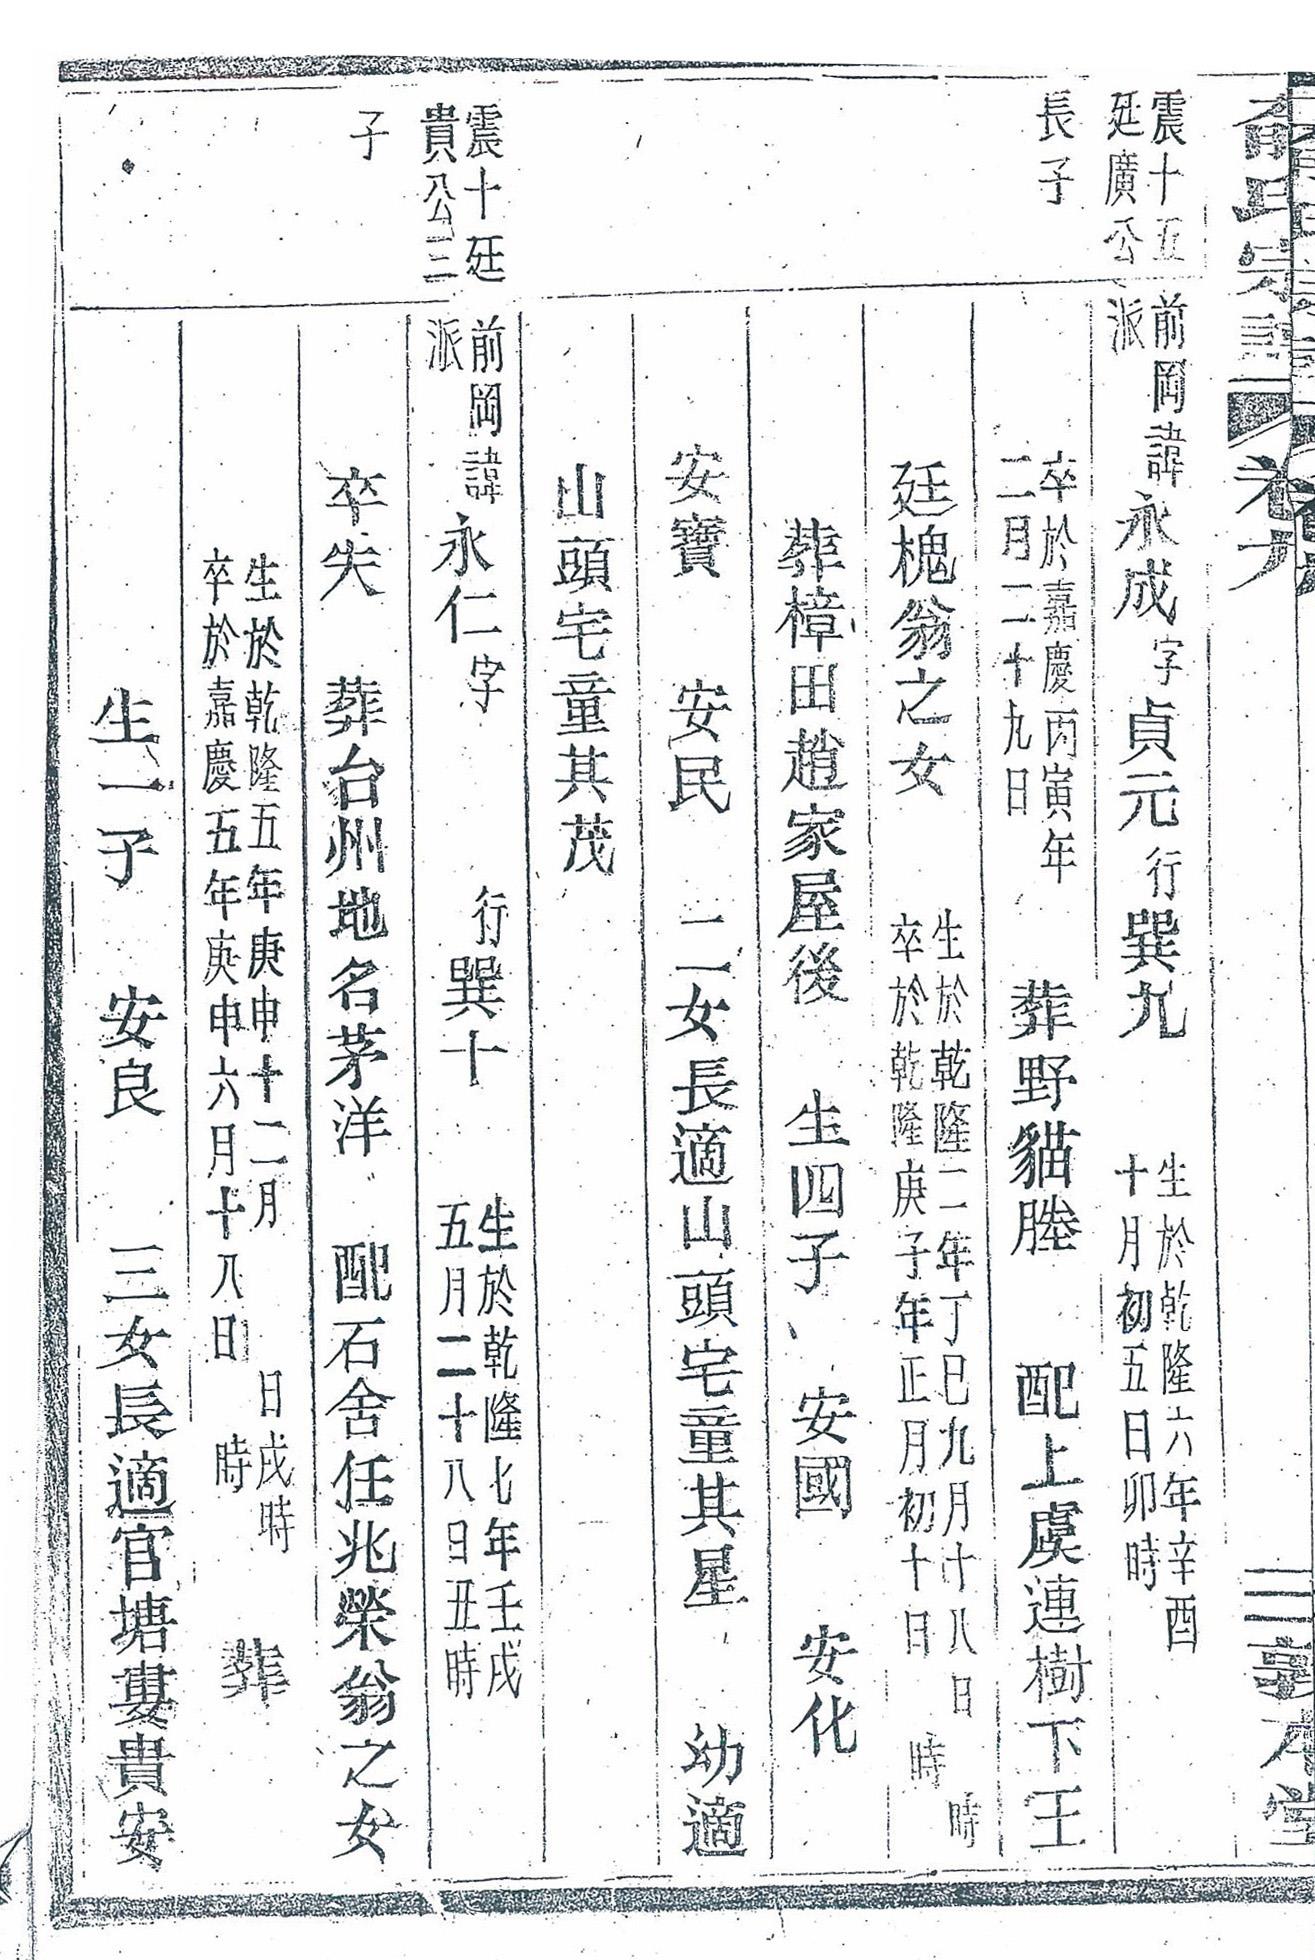 氏宗譜
卷九
三
敦本堂
震十五
廷廣公
長子
前岡諱
派
永成字貞元行巽九
生於乾隆六年辛酉
十月初五日卯時
卒於嘉慶丙寅年
二月二十九日
葬野貓塍 配上虞連樹下王
廷槐翁之女
生於乾隆二年丁巳九月十八日 時
卒於乾隆庚子年正月初十日 時
葬樟田趙家屋後 生四子 安國 安化
安寶 安民 二女長適山頭宅童其星 幼適
山頭宅童其茂
震十廷
貴公三
子
前岡諱
派
永仁字 行巽十
生於乾隆七年壬戌
五月二十八日丑時
卒失 葬台州地名茅洋 配石舍任兆榮翁之女
生於乾隆五年庚申十二月 日戌時
卒於嘉慶五年庚申六月十八日 時
葬
生一子 安良 三女長適官塘婁貴安